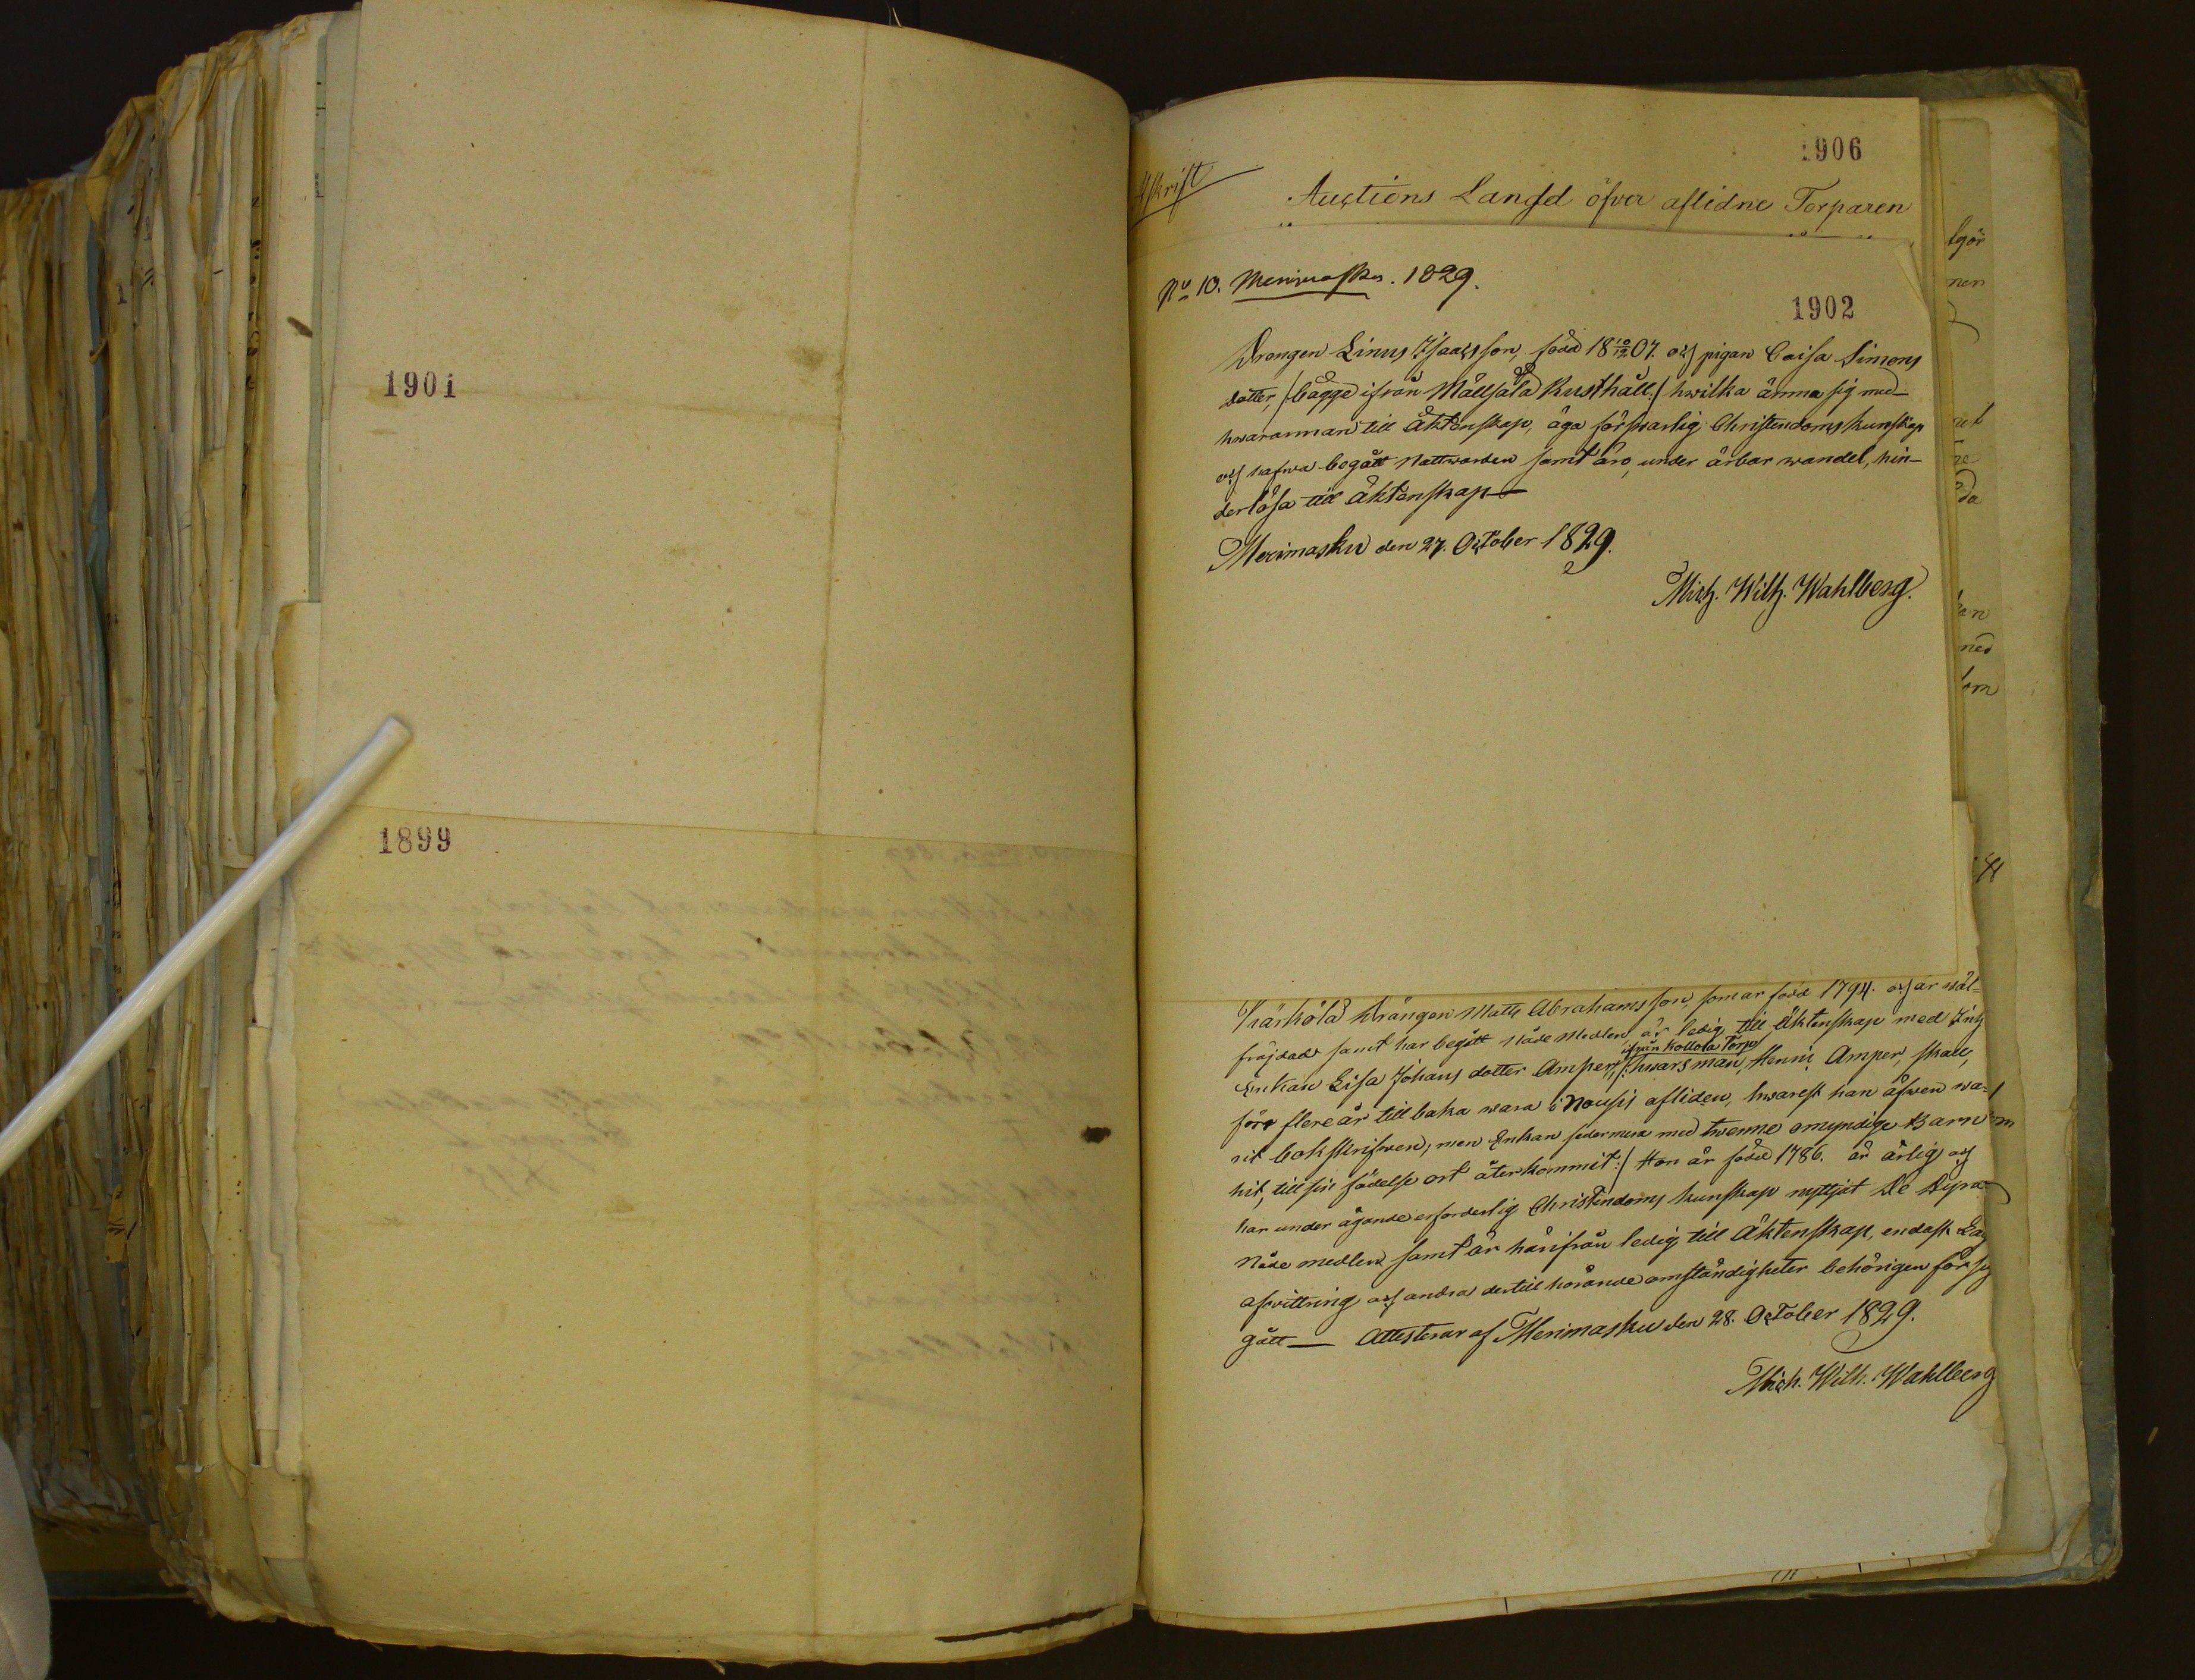 1901
1899
1906
Afskrift
Auctions Längd öfver aflidne Torparen
No 10. Merimasku. 1829.
1902
Drengen Linus Isaacsson, född 18 10/12 07. och pigan Caisa Simons
dotter, /: bägge ifrån Rusthåll :/ hwilka ämna sig med
hwarannan till Äktenskap, äga förswarlig Christendoms kunskap
och hafwa begått Nattwarden samt äro, under ärbar wandel, hin-
derlösa till Äktenskap —
Merimasku den 27. October 1829.
Mich. Wilh. Wahlberg.
Drängen Matts Abrahamsson, som är född 1794. och är wäl-
frejdad samt har begått Nåde Medlen är ledig till Äktenskap med
ifrån Kollola Torp
Enkan Lisa Johans dotter Amper, /: hwars man, Henric Amper, skall,
före flere år tillbaka wara i Nousis afliden, hwarest han äfwen wa-
rit bokskrifwen; men Enkan sedermera med twenne omyndige Barn
hit, till sin födelse ort återkommit :/ Hon är född 1786. är ärlig och
har under ägande erforderlig Christendoms kunskap nyttjat De Dyra
Nåde medlen samt är härifrån ledig till Äktenskap, endast
afwittring och andra dertill hörande omständigheter behörigen för sig
gått — Attesterar af Merimasku den 28. October 1829.
Mich. Wilh. Wahlberg